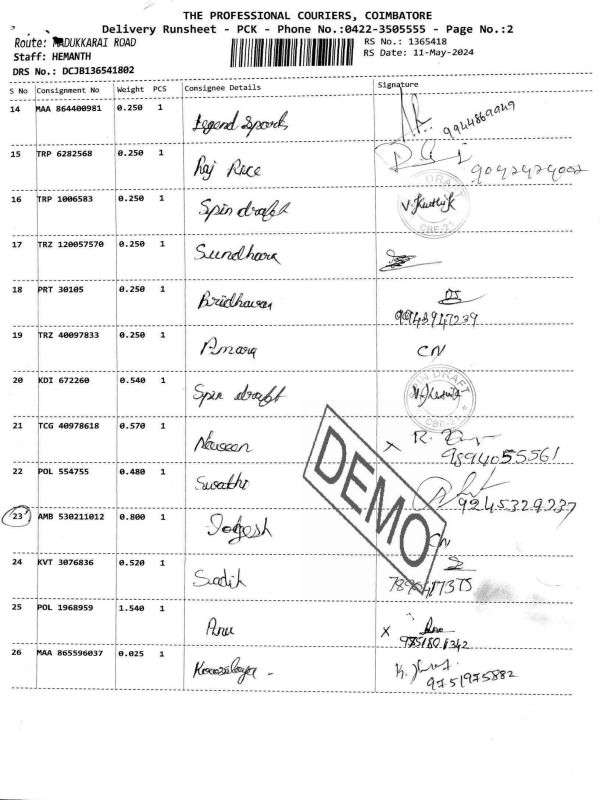 THE PROFESSIONAL COURIERS, COIMBATORE
Delivery Runsheet - PCK - Phone No.:0422-3505555 - Page No.:2
Route: MADUKKARAI ROAD
RS No.: 1365418
Staff: HEMANTH
RS Date: 11-May-2024
DRS No.: DCJB136541802
S No Consignment No Weight PCS Consignee Details Signature
14 MAA 864400981 0.250 1 Legend Sports
15 TRP 6282568 0.250 1 Raj Rice
16 TRP 1006583 0.250 1 Spin draft V. Karthik
17 TRZ 120057570 0.250 1 Sundhara
18 PRT 30105 0.250 1 Bridhavan
19 TRZ 40097833 0.250 1 Amara CN
20 KDI 672260 0.540 1 Spin draft
21 TCG 40978618 0.570 1 Naveen X R.
9894055561
22 POL 554755 0.480 1 Swathi
9245329237
23 AMB 530211012 0.800 1 Jogesh CN
24 KVT 3076836 0.520 1 Sadik
25 POL 1968959 1.540 1 Anu X
26 MAA 865596037 0.025 1 K.
9751975882
DEMO